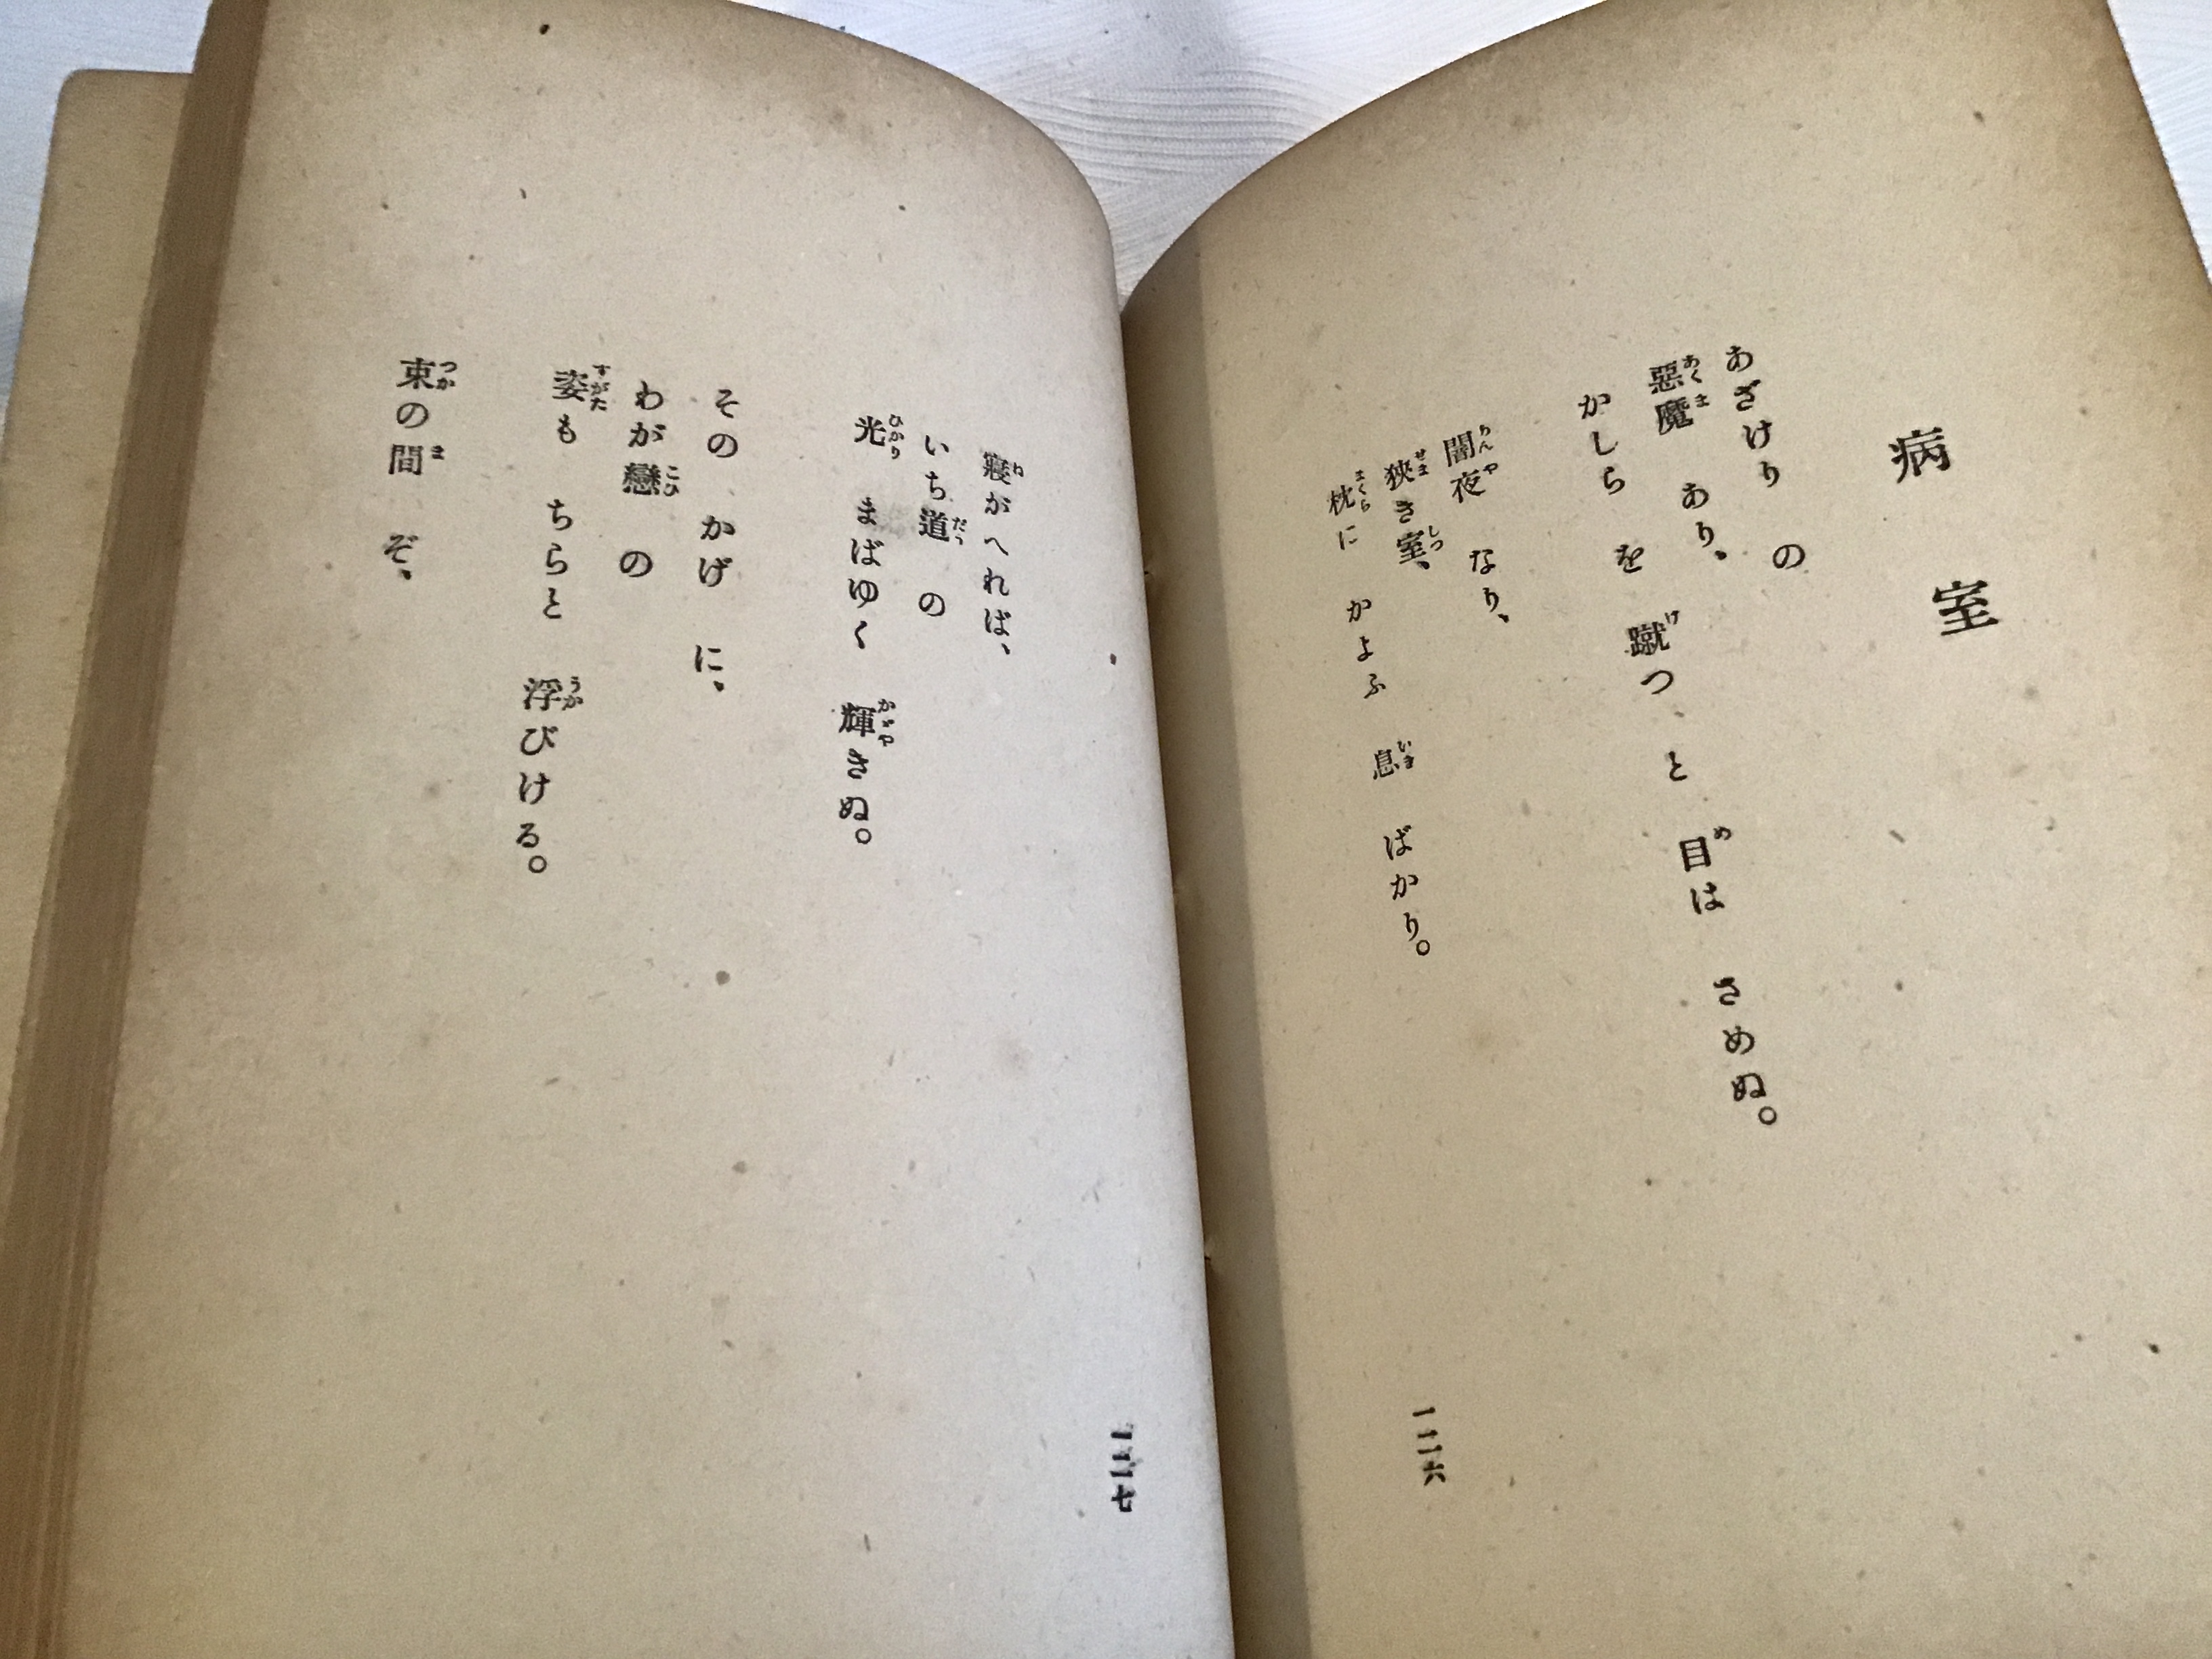 病室
あざけり の
惡魔 あり、
かしら を 蹴つ と 目は さめぬ。
闇夜 なり、
狹き室、
枕に かよふ 息 ばかり。
一一六
寢がへれば、
いち道 の
光 まばゆく 輝きぬ。
その かげ に、
わが戀 の
姿も ちらと 浮びける。
束の間 ぞ、
一一七